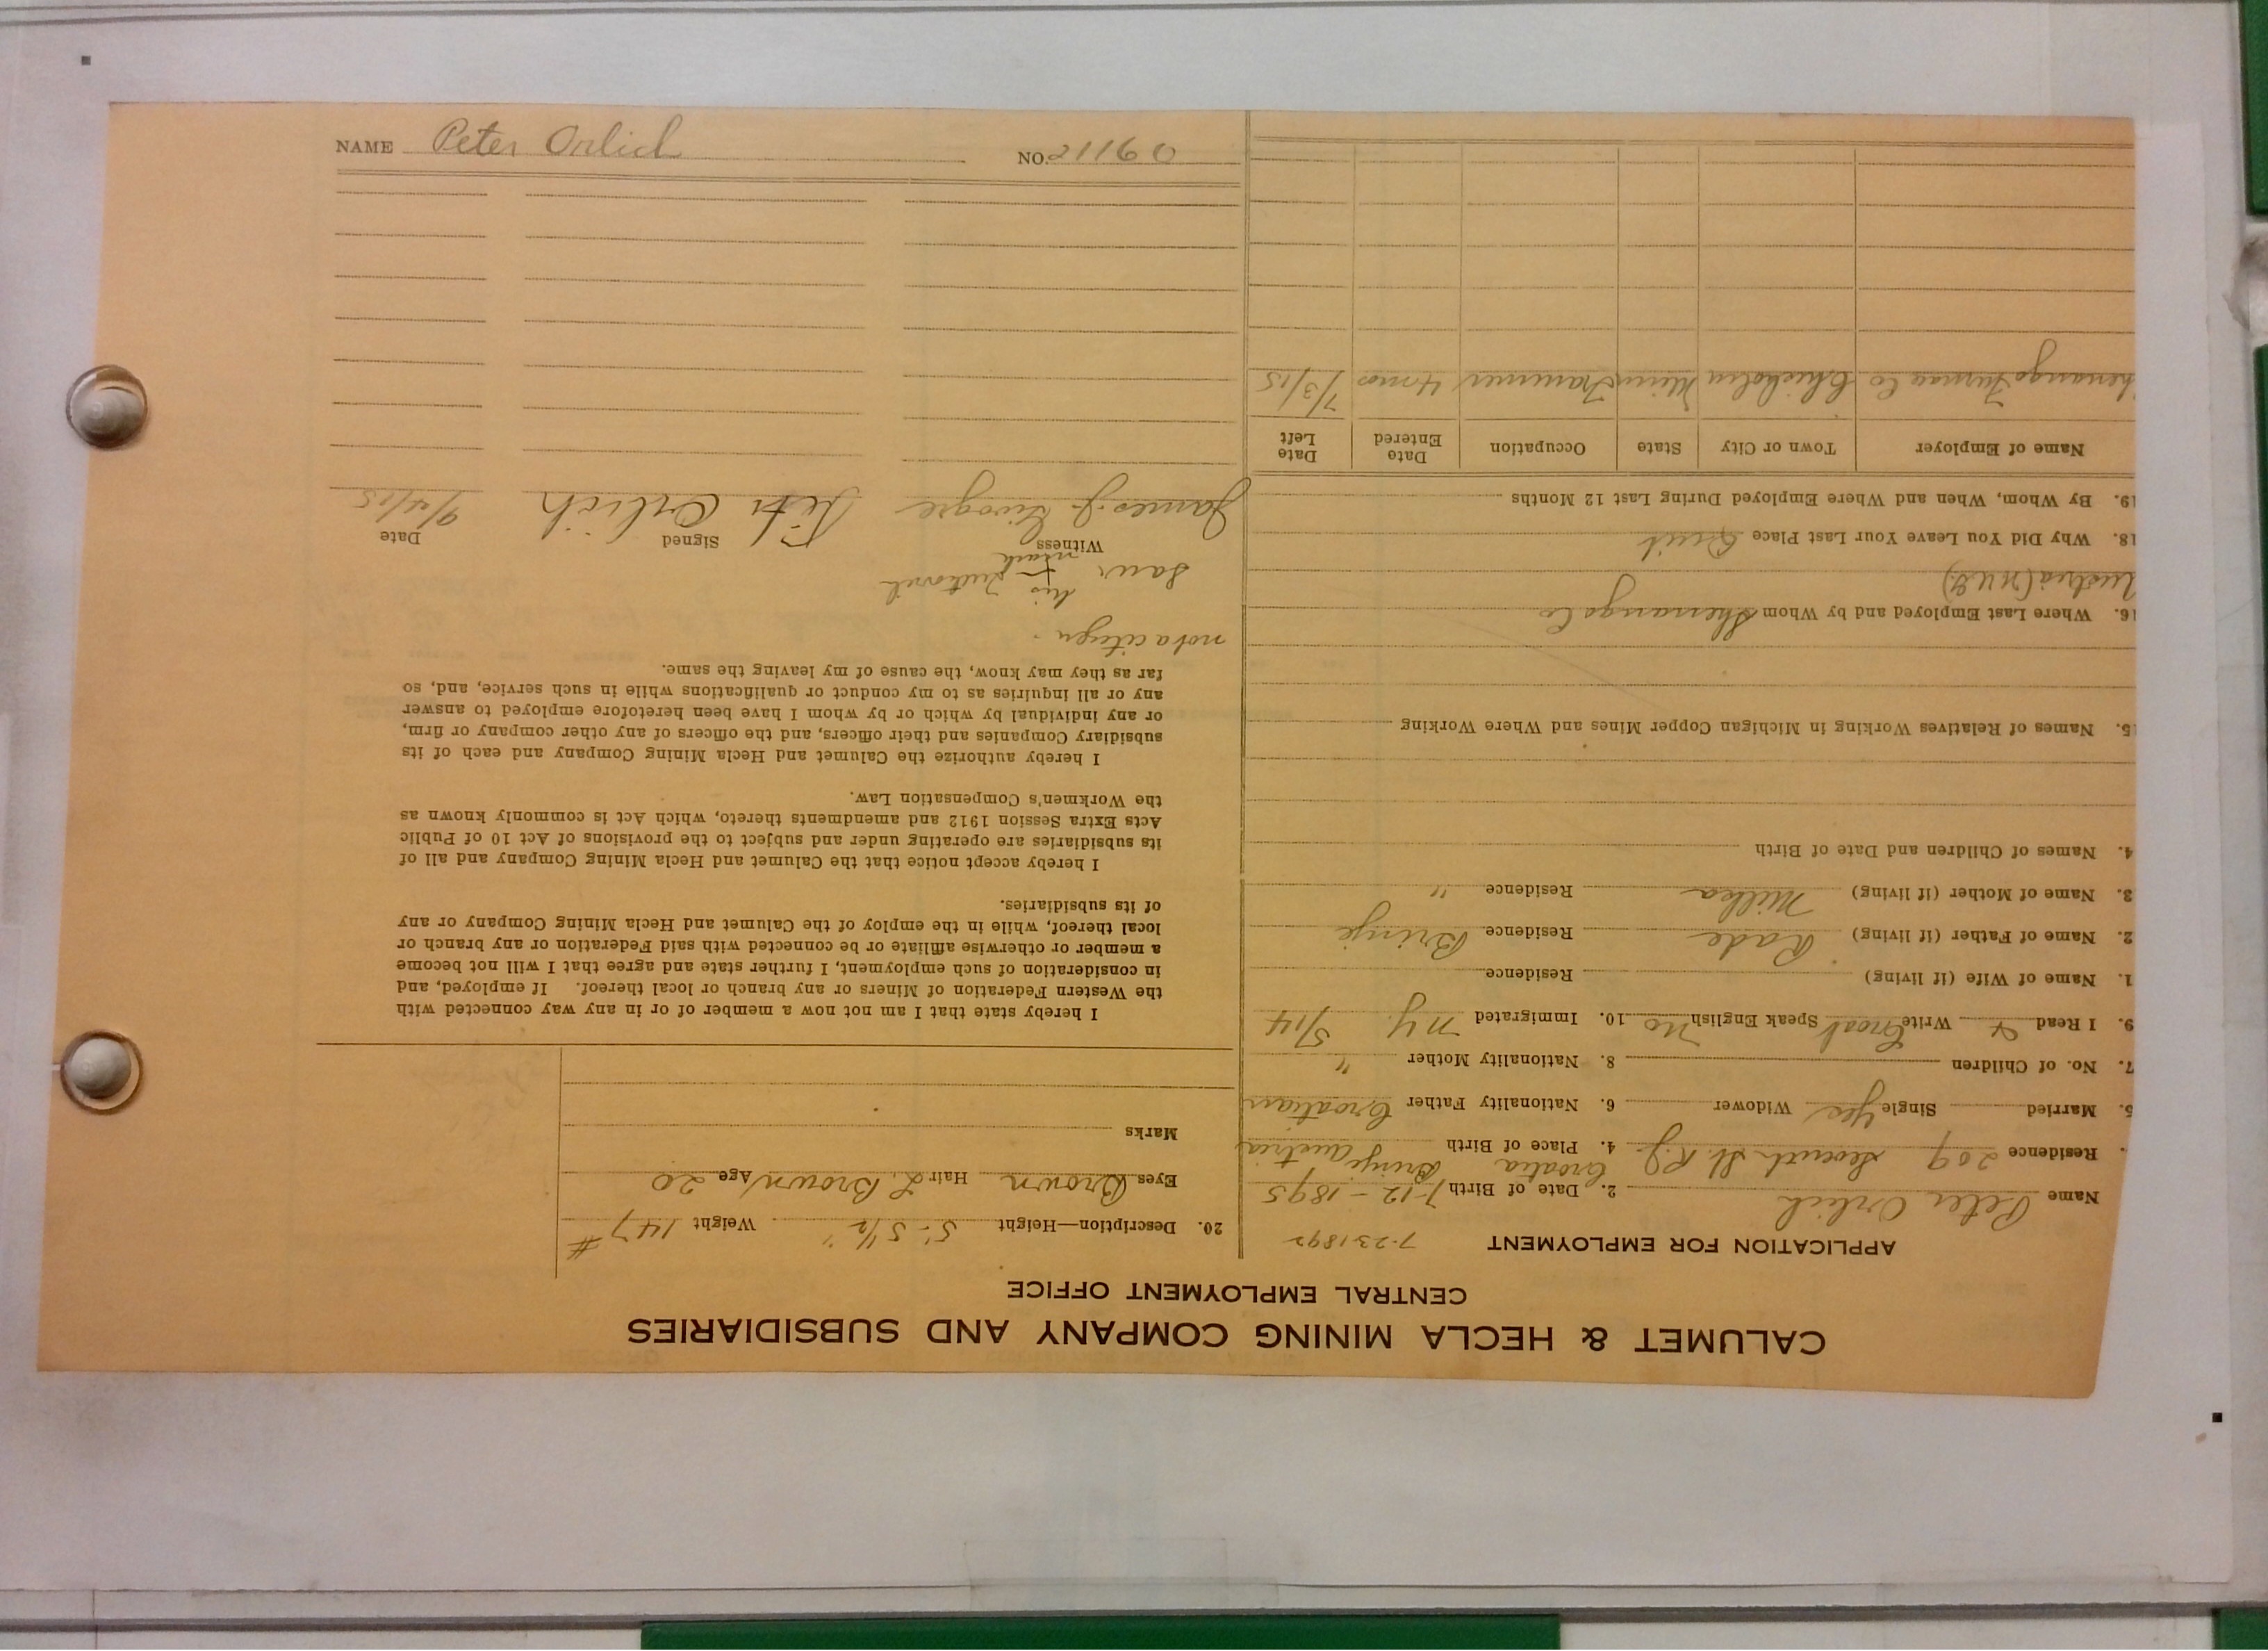 CALUMET & HECLA MINING COMPANY AND SUBSIDIARIES
CENTRAL EMPLOYMENT OFFICE
APPLICATION FOR EMPLOYMENT 7-23 1892
Name Peter Orlich 2. Date of Birth 7-12-1895
Residence 209 Seventh St. R.J. 4. Place of Birth Croatia Brinje Austria
5. Married Single Yes Widower 6. Nationality Father Croatian
7. No. of Children 8. Nationality Mother "
9. I Read & Write Croat Speak English No 10. Immigrated N.Y. 5/14
1. Name of Wife (if living) Residence
2. Name of Father (if living) Rade Residence Brinje
3. Name of Mother (if living) Milka Residence "
4. Names of Children and Date of Birth
5. Names of Relatives Working in Michigan Copper Mines and Where Working
16. Where Last Employed and by Whom Shenango Co
Austria
18. Why Did You Leave Your Last Place Quit
19. By Whom, When and Where Employed During Last 12 Months
Name of Employer Town or City State Occupation Date Entered Date Left
henango Furnace Co Chisholm Minn Trammer 4 mos 7/3/15
20. Description—Height 5'-5 1/2" Weight 147 #
Eyes Brown Hair L. Brown Age 20
Marks
I hereby state that I am not now a member of or in any way connected with
the Western Federation of Miners or any branch or local thereof. If employed, and
in consideration of such employment, I further state and agree that I will not become
a member or otherwise affiliate or be connected with said Federation or any branch or
local thereof, while in the employ of the Calumet and Hecla Mining Company or any
of its subsidiaries.
I hereby accept notice that the Calumet and Hecla Mining Company and all of
its subsidiaries are operating under and subject to the provisions of Act 10 of Public
Acts Extra Session 1912 and amendments thereto, which Act is commonly known as
the Workmen's Compensation Law.
I hereby authorize the Calumet and Hecla Mining Company and each of its
subsidiary Companies and their officers, and the officers of any other company or firm,
or any individual by which or by whom I have been heretofore employed to answer
any or all inquiries as to my conduct or qualifications while in such service, and, so
far as they may know, the cause of my leaving the same.
not a citizen.
his
mark
Witness Signed Date
James J. Peter Orlich 9/4/15
NAME Peter Orlich NO. 21160